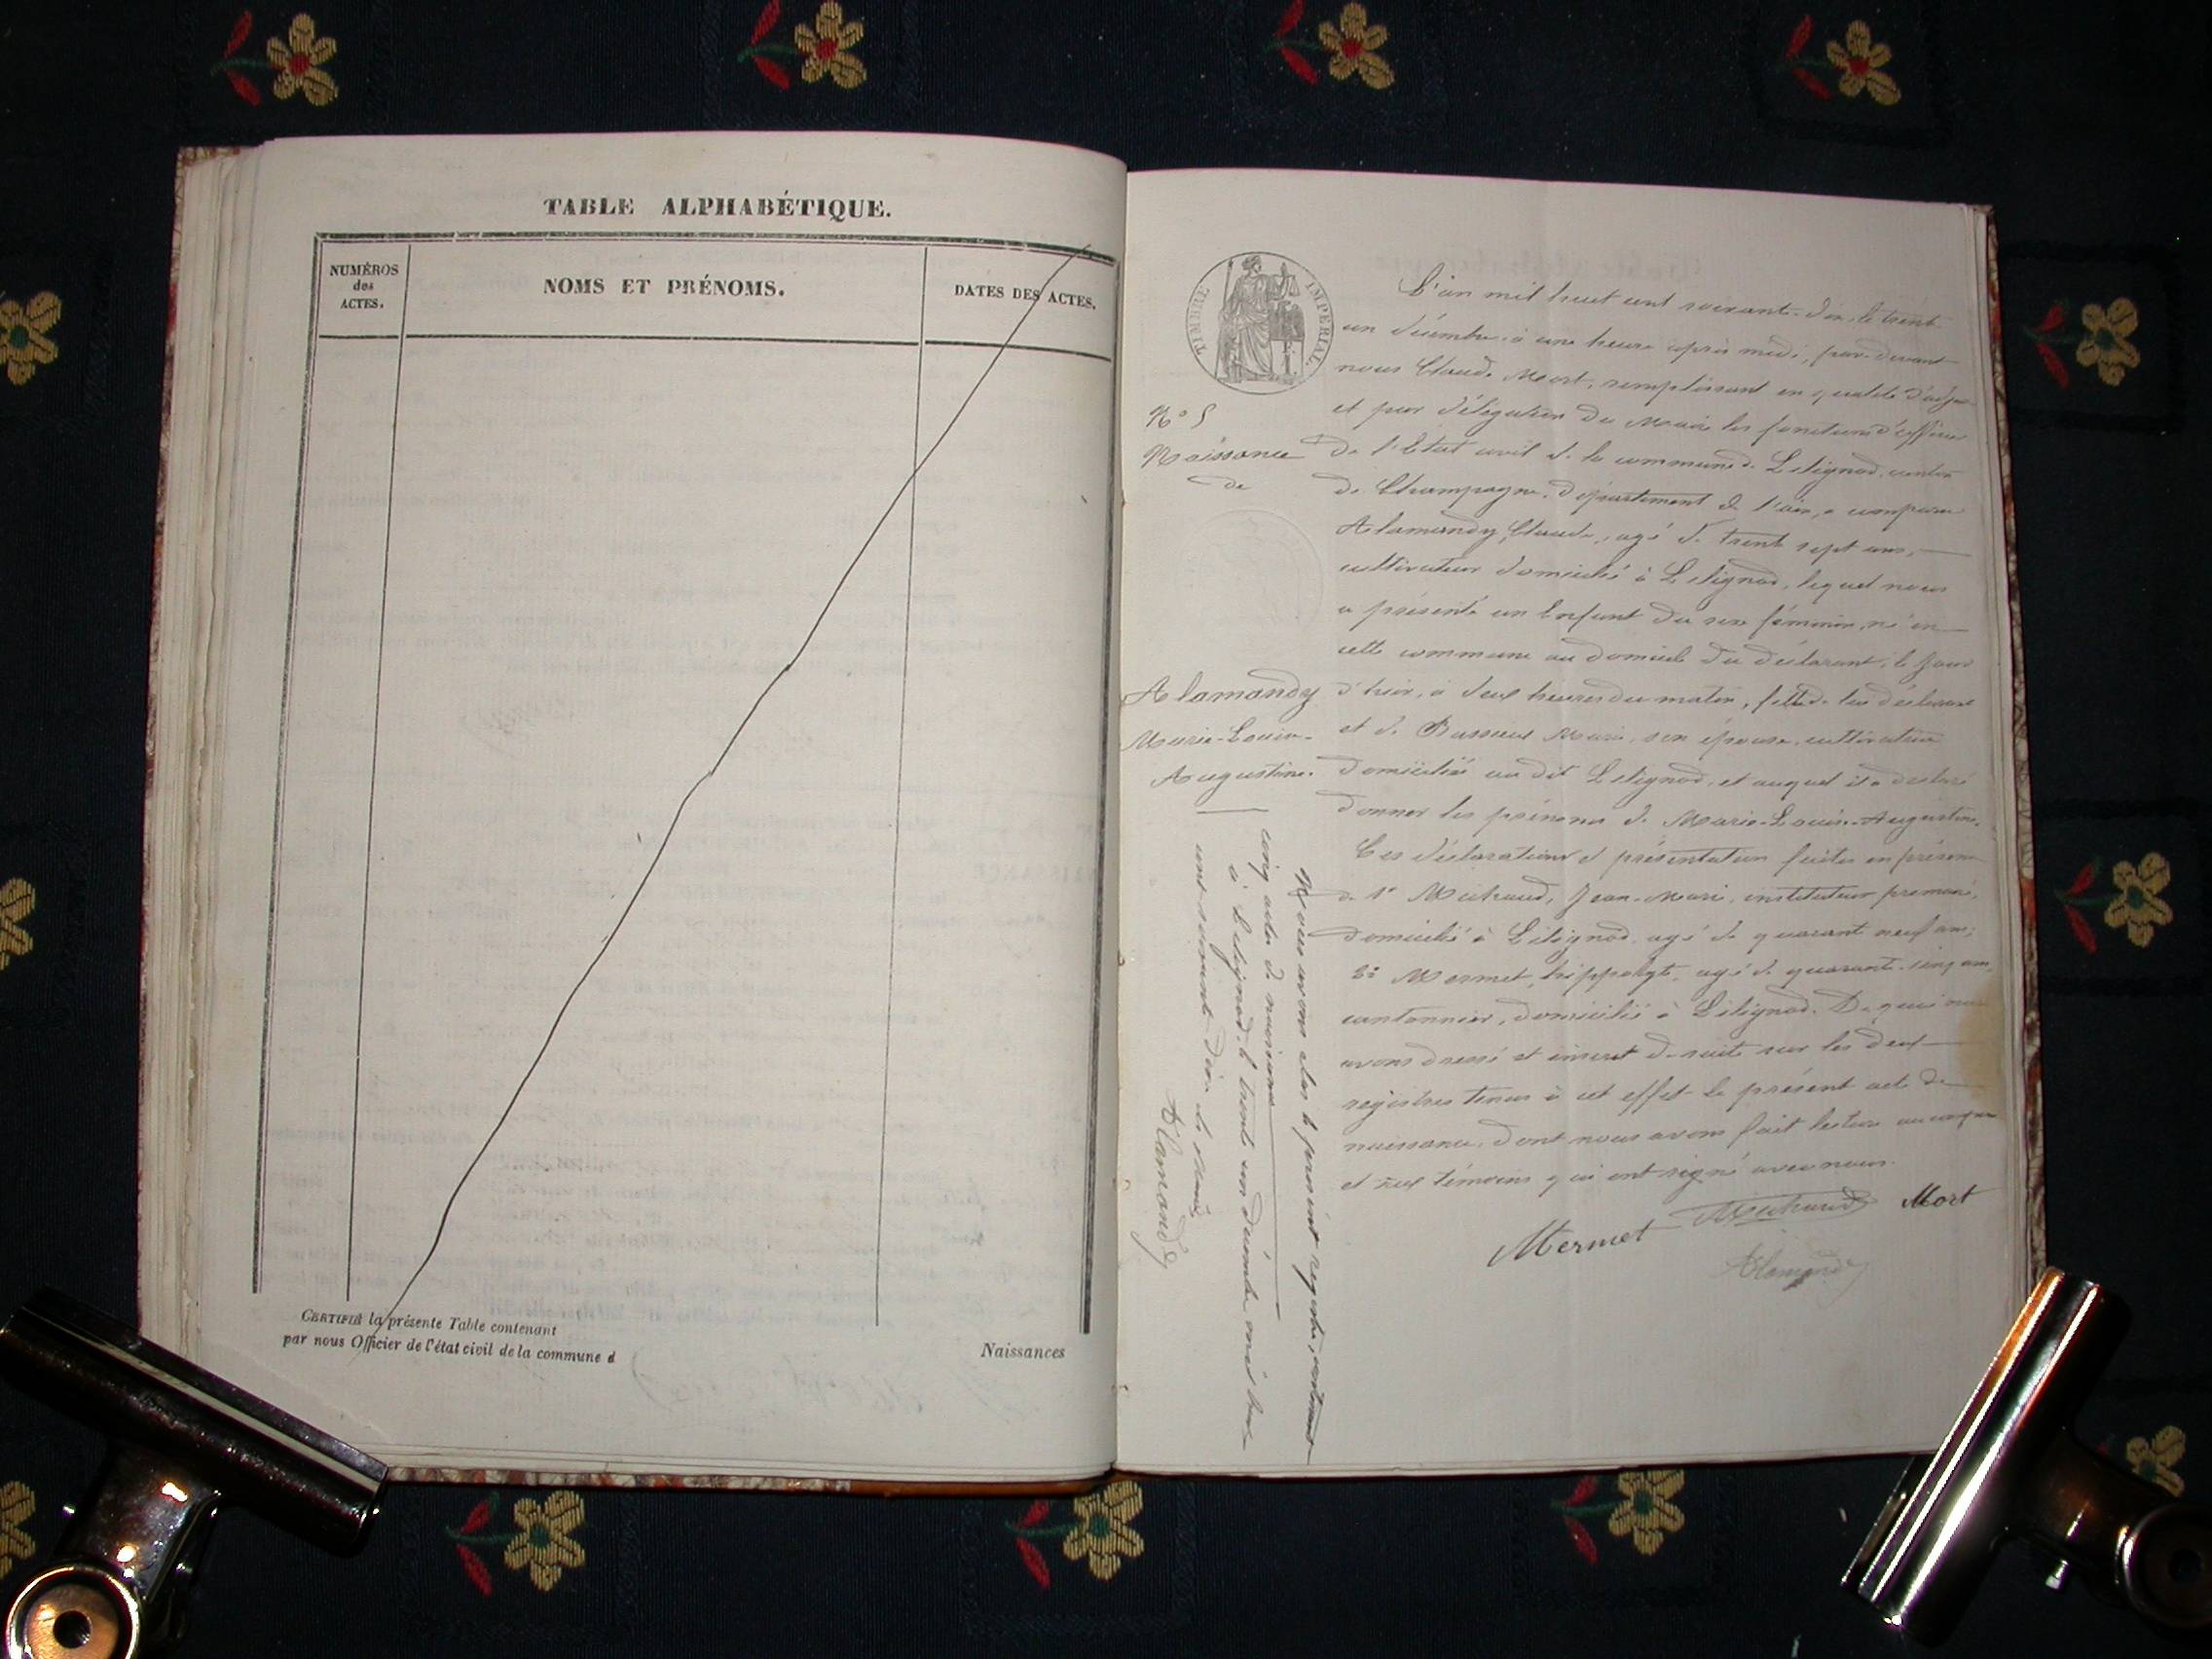 TABLE ALPHABÉTIQUE.
NUMÉROS
des
ACTES.
NOMS ET PRÉNOMS.
DATES DES ACTES.
CERTIFIÉ la présente Table contenant
par nous Officier de l'état civil de la commune d
Naissances
TIMBRE IMPERIAL.
N° 5
Naissance
de
Alamandy
Marie-Louise-
Augustine.
L'an mil huit cent soixante-dix, le trente
un décembre, à une heure après midi, par-devant
nous Claude Mort, remplissant en qualité d'adjoint
et par délégation du Maire les fonctions d'officier
de l'Etat civil de la commune de Lilignod, canton
de Champagne, département de l'ain, a comparu
Alamandy, Claude, agé de trente sept ans,
cultivateur domicilié à Lilignod, lequel nous
a présenté un Enfant du sexe féminin, né en
cette commune au domicile du déclarant, le jour
d'hier, à deux heures du matin, fille de lui déclarant
et de Bussieux Marie, son épouse, cultivatrice
domiciliée au dit Lilignod, et auquel il a déclaré
donner les prénoms de Marie-Louise-Augustine.
Ces déclaration et présentation faites en présence
de 1° Michaud, Jean-Marie, instituteur primaire,
domicilié à Lilignod, agé de quarante neuf ans;
2° Mermet, hippolyte, agé de quarante-cinq ans,
cantonnier, domicilié à Lilignod. De quoi nous
avons dressé et inscrit de suite sur les deux
registres tenus à cet effet le présent acte de
naissance, dont nous avons fait lecture au comparant
et aux témoins qui ont signé avec nous.
Mermet Michaud Mort
Alamandy
Nous avons clos le présent registre, contenant
cinq actes de naissance
à Lilignod, le trente un décembre, mil huit
cent soixante-dix. Le maire,
Alamandy